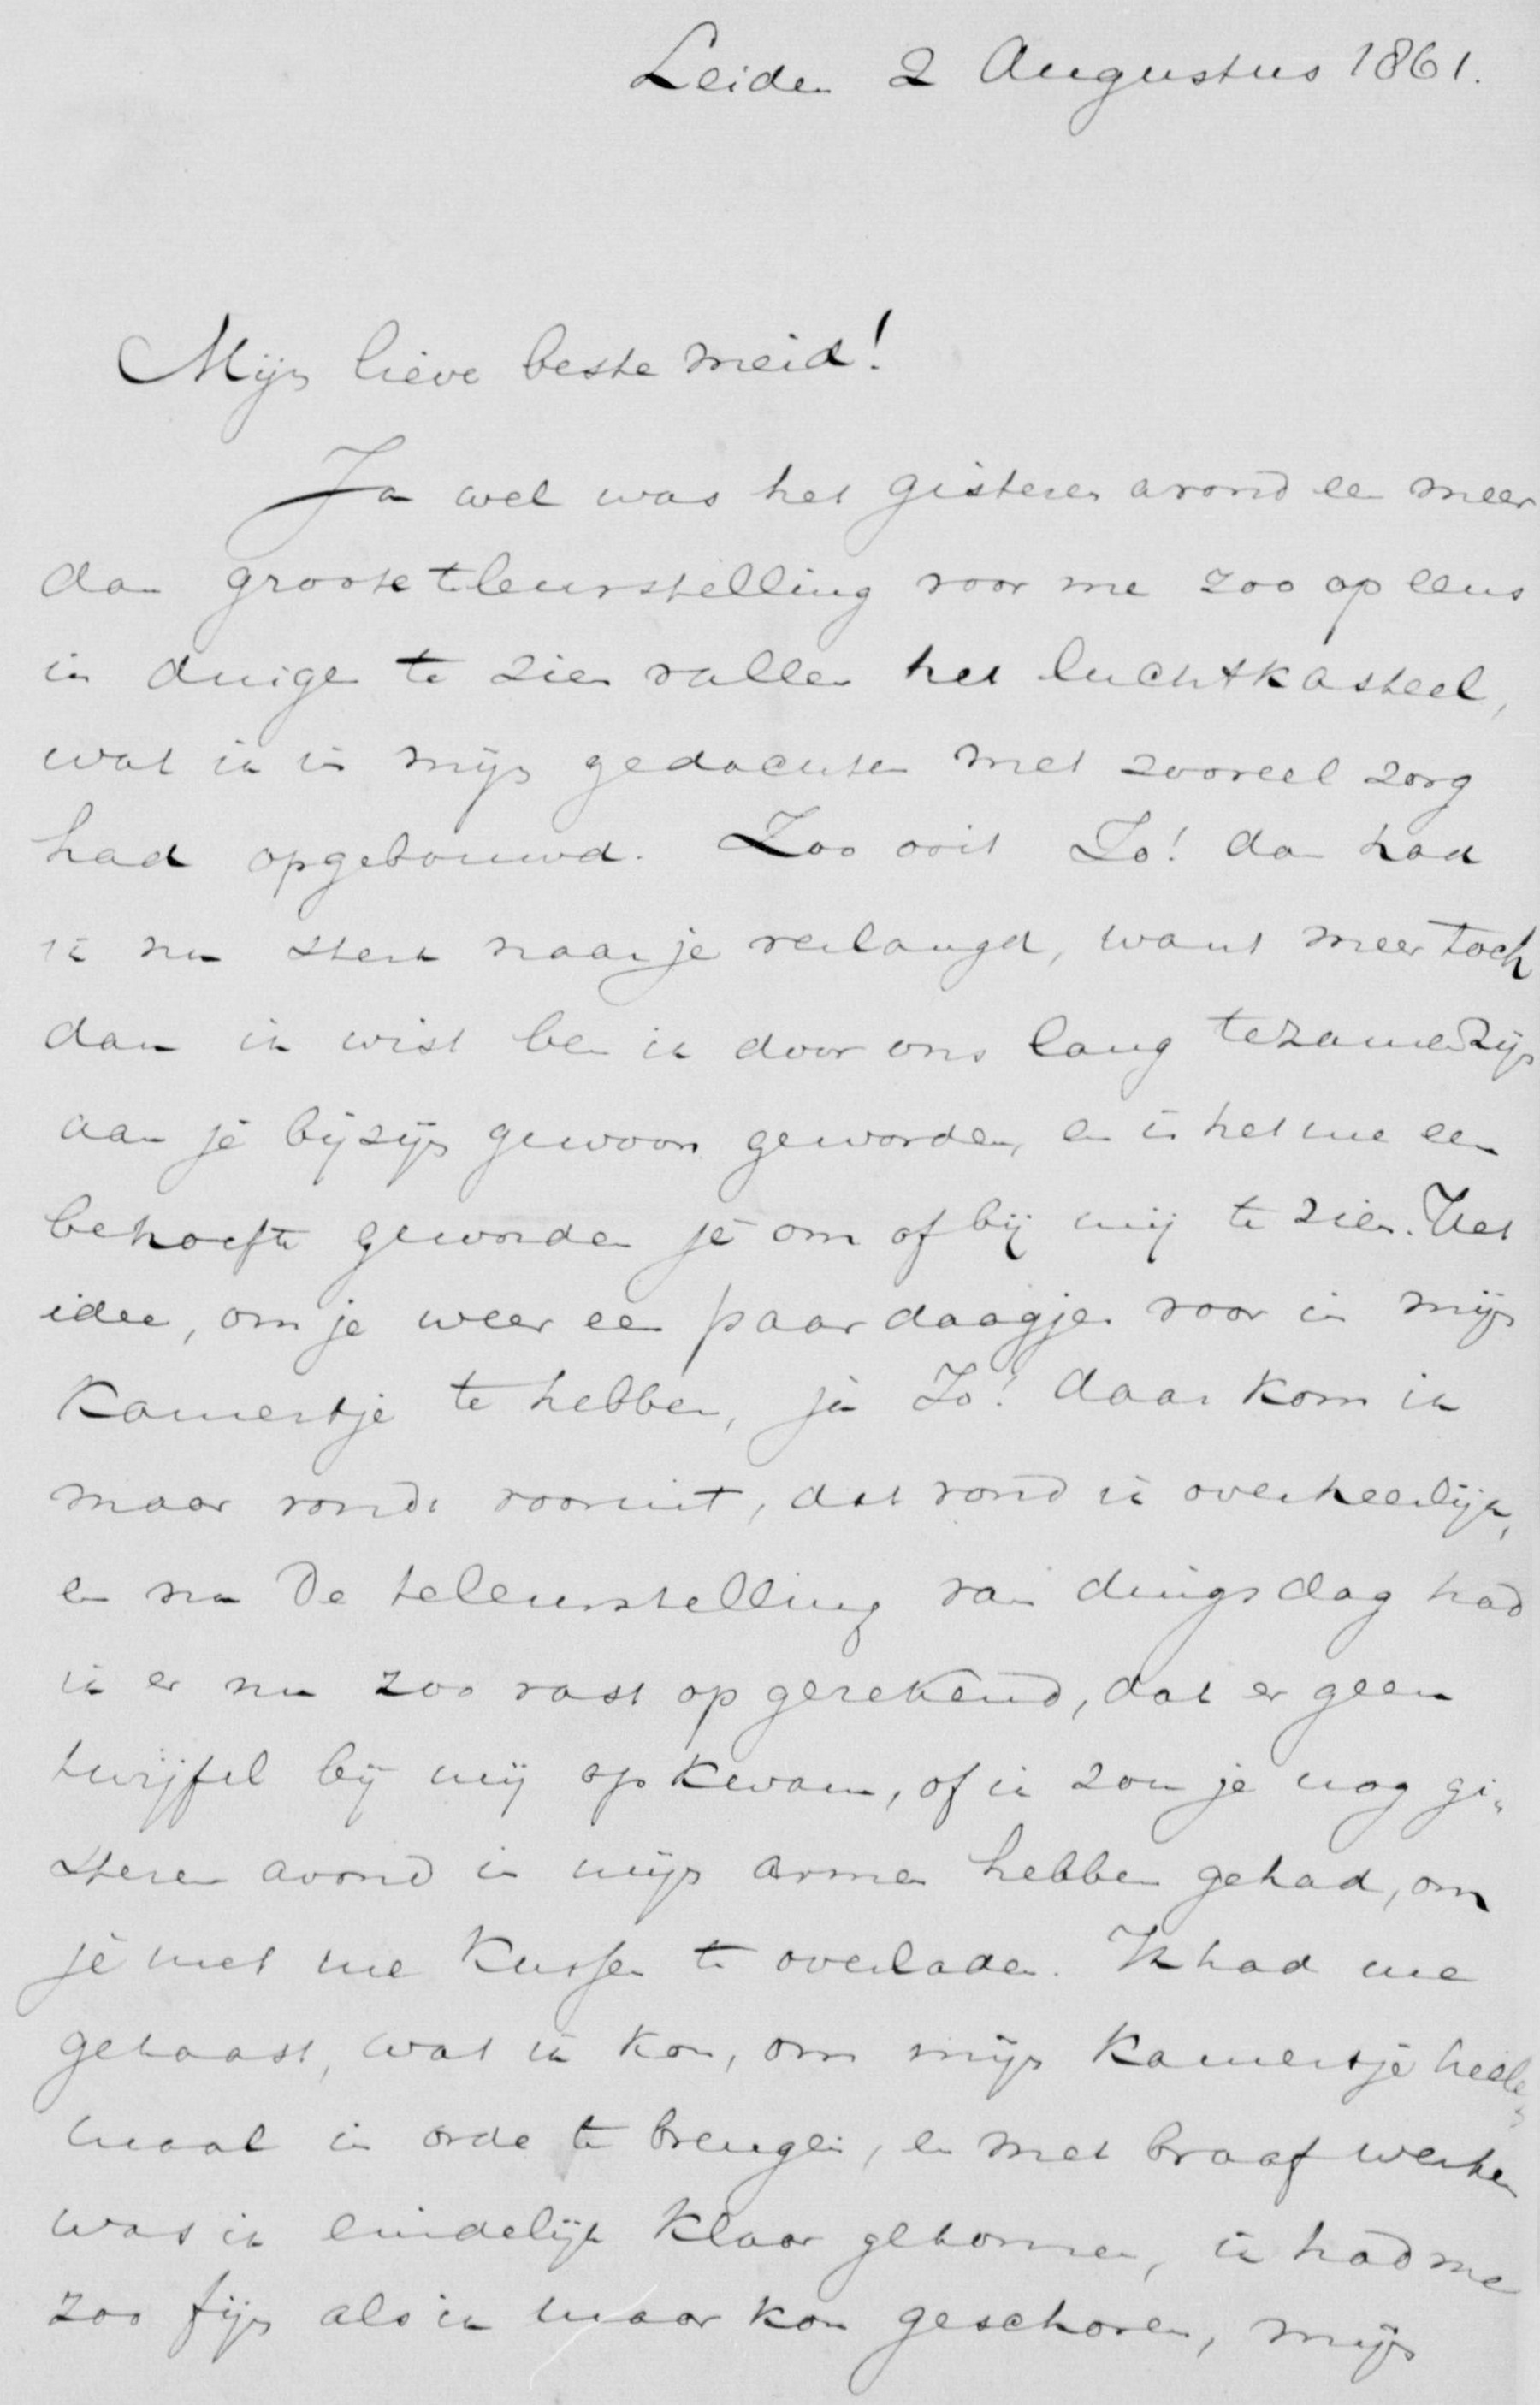 Leiden 2 Augustus 1861.
Mijn lieve beste meid!
Ja wel was het gisteren avond een meer
dan groote teleurstelling voor me zoo op eens
in duigen te zien vallen het luchtkasteel,
wat ik in mijn gedachten met zooveel zorg
had opgebouwd. Zoo ooit Jo! dan had
ik nu sterk naar je verlangd, want meer toch
dan ik wist ben ik door ons lang tezamenzijn
aan je bijzijn gewoon geworden, en is het me een
behoefte geworden je om of bij mij te zien. Het
idee, om je weer een paar daagjes voor in mijn
kamertje te hebben, ja Jo! daar kom ik
maar ronds vooruit, dat vond ik overheerlijk,
en na de teleurstelling van dingsdag had
ik er nu zoo vast op gerekend, dat er geen
twijfel bij mij op kwam, of ik zou je nog gi„
steren avond in mijn armen hebben gehad, om
je met me kussen te overladen. Ik had me
gehaast, wat ik kon, om mijn kamertje heele„
maal in orde te brengen, en met braaf werken
was ik eindelijk klaar gekomen, ik had me
zoo fijn als ik maar kon geschoren, mijn